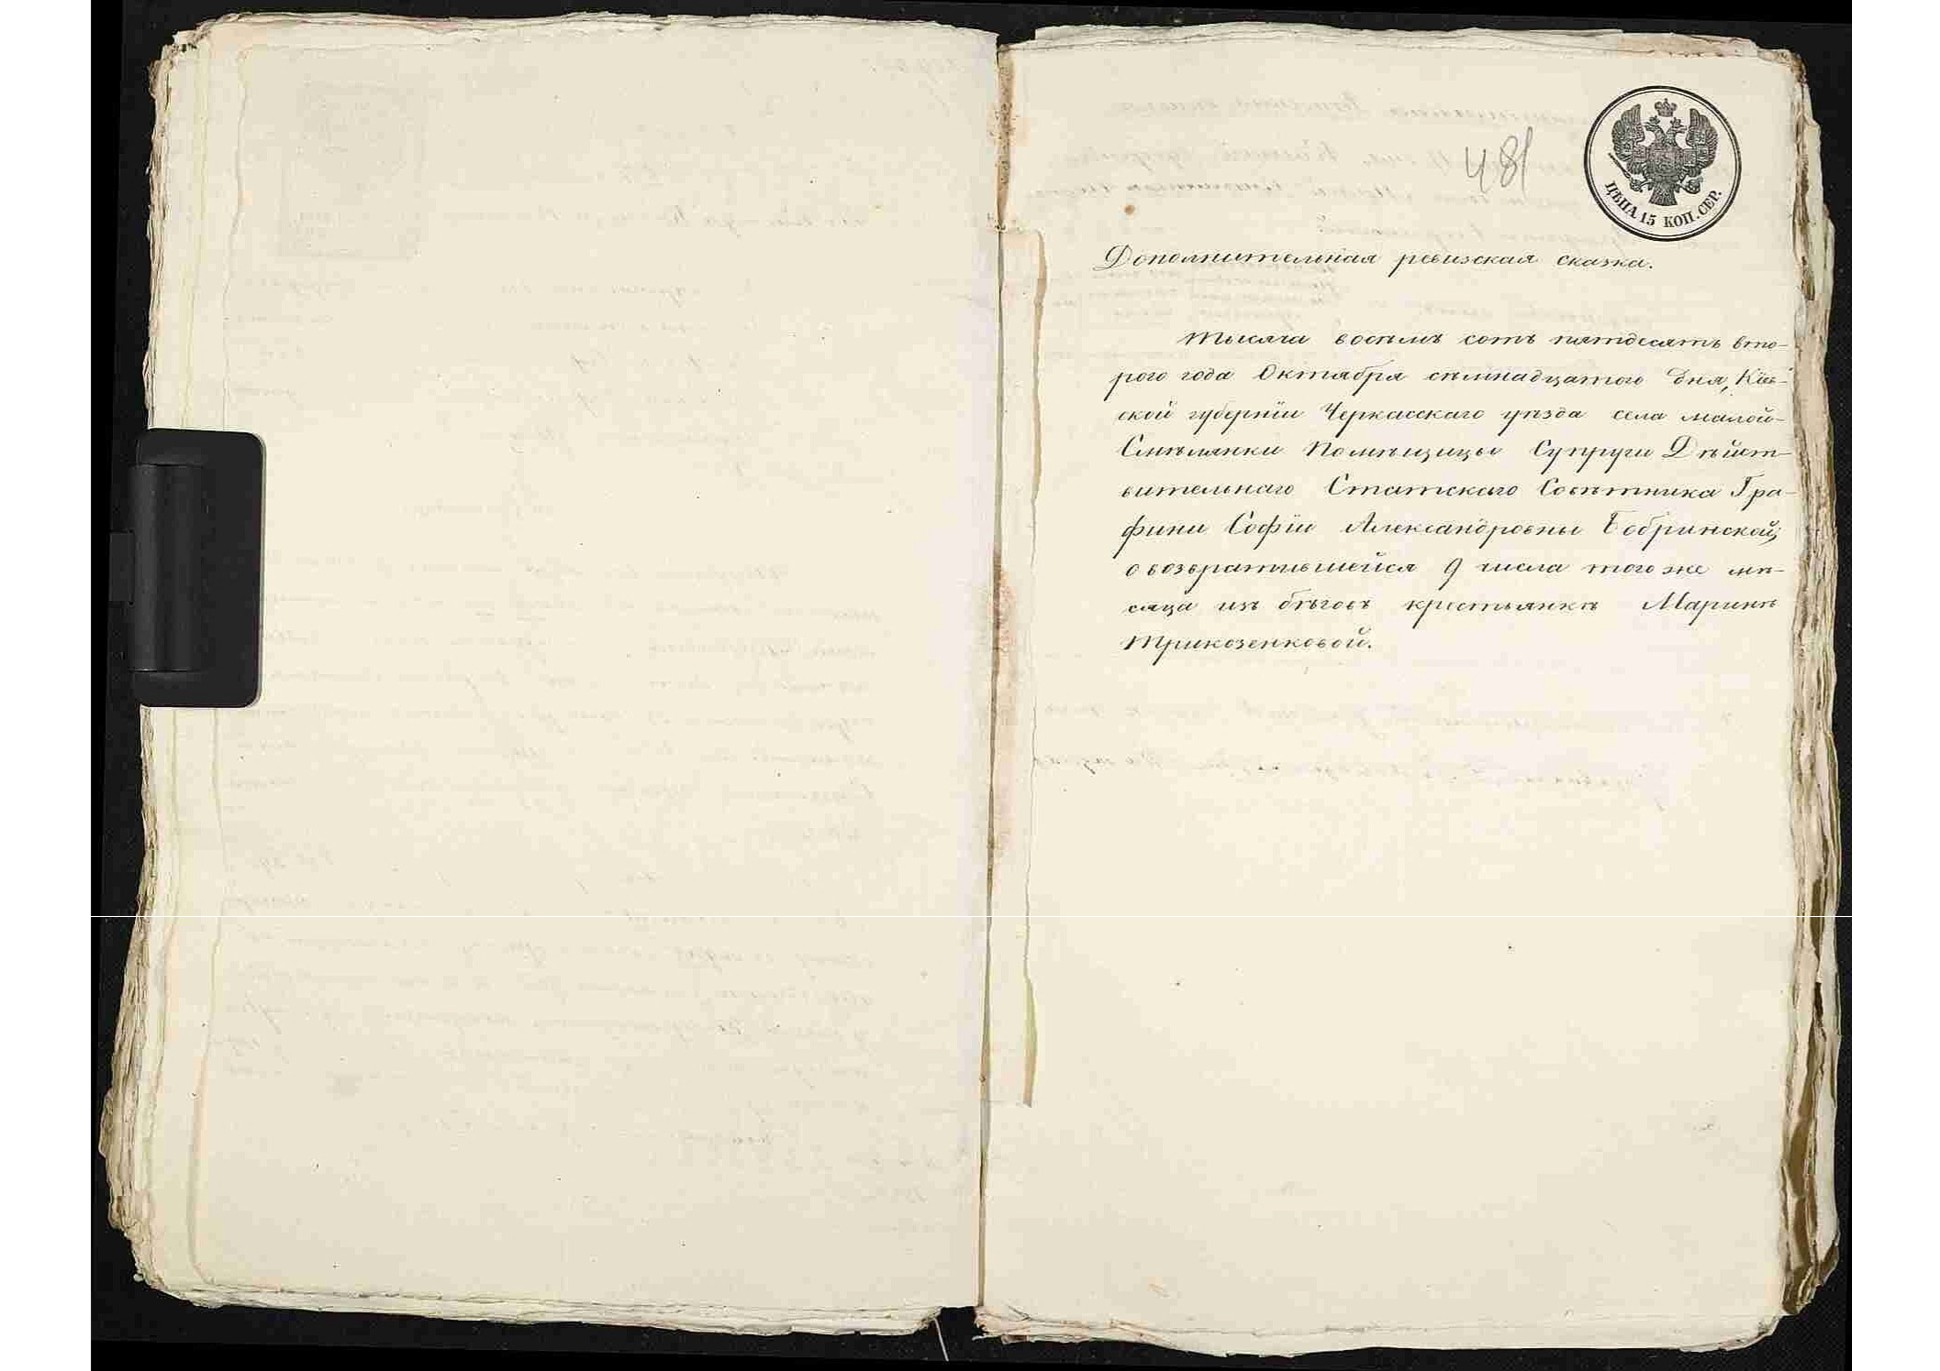 481
ЦѢНА 15 КОП. СЕР.
Дополнительная ревизская сказка.
Тысяча восѣмь сотъ пятдесятъ вто-
рого года Октября сѣмнадцатого дня, Кіев-
ской губерніи Черкасскаго уѣзда села малой-
Смѣлянки Помѣщицы Супруги Дѣйст-
вительнаго Статского Совѣтника Гра-
фини Софіи Александровны Бобринской,
о возвратившейся 9 числа того же мѣ-
сяца изъ бѣговъ крестьянкѣ Маринѣ
Трикозенковой.